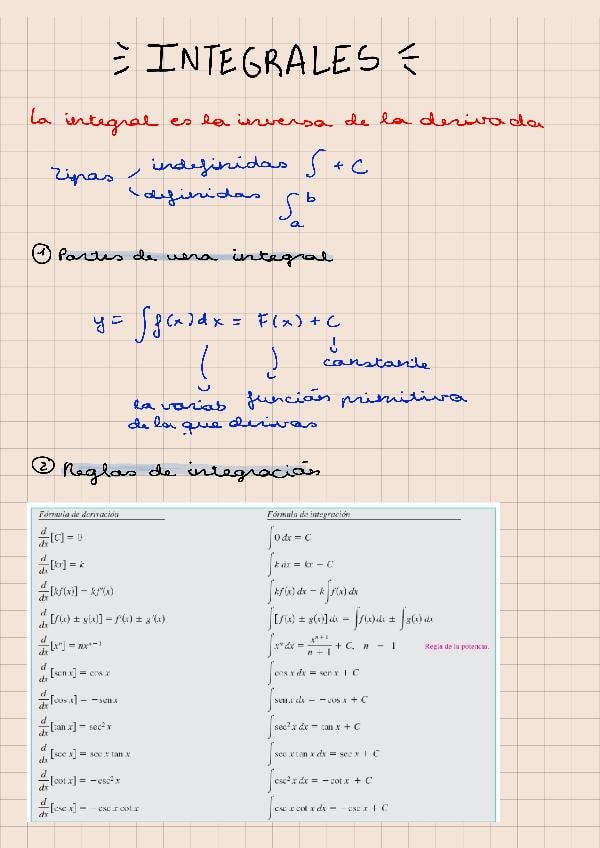 INTEGRALES
La integral es la inversa de la derivada
Tipos indefinidas ∫ + C
definidas ∫ₐᵇ
① Partes de una integral
y = ∫ f(x) dx = F(x) + C
constante
la varias función primitiva
de la que derivas
② Reglas de integración
Fórmula de derivación Fórmula de integración
d/dx [C] = 0 ∫ 0 dx = C
d/dx [kx] = k ∫ k dx = kx + C
d/dx [kf(x)] = kf'(x) ∫ kf(x) dx = k ∫ f(x) dx
d/dx [f(x) ± g(x)] = f'(x) ± g'(x) ∫ [f(x) ± g(x)] dx = ∫ f(x) dx ± ∫ g(x) dx
d/dx [xⁿ] = nxⁿ⁻¹ ∫ xⁿ dx = xⁿ⁺¹/n + 1 + C, n − 1 Regla de la potencia.
d/dx [sen x] = cos x ∫ cos x dx = sen x + C
d/dx [cos x] = −sen x ∫ sen x dx = −cos x + C
d/dx [tan x] = sec² x ∫ sec² x dx = tan x + C
d/dx [sec x] = sec x tan x ∫ sec x tan x dx = sec x + C
d/dx [cot x] = −csc² x ∫ csc² x dx = −cot x + C
d/dx [csc x] = −csc x cot x ∫ csc x cot x dx = −csc x + C